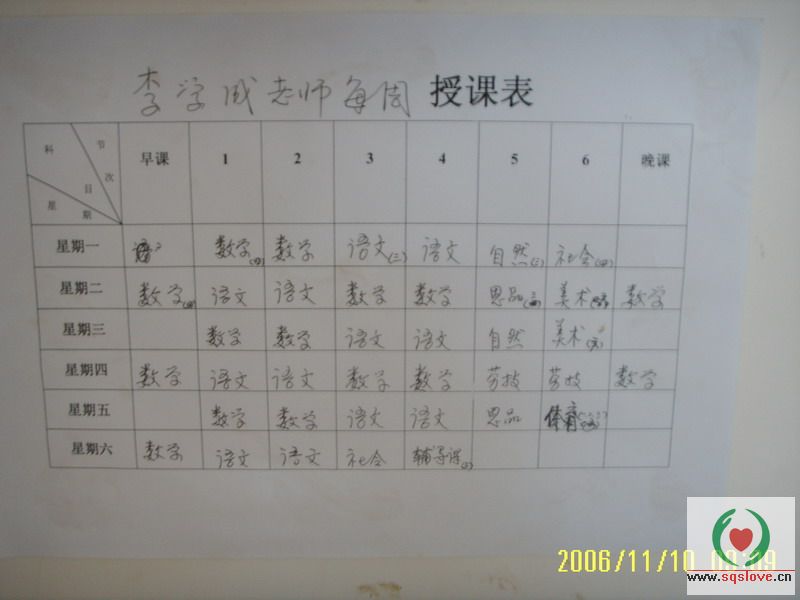 李学成老师每周 授课表
科 节 目 次 星 期 早课 1 2 3 4 5 6 晚课
星期一 数学(四) 数学 语文(三) 语文 自然(三) 社会(四)
星期二 数学 语文 语文 数学 数学 思品 美术 数学
星期三 数学 数学 语文 语文 自然 美术
星期四 数学 语文 语文 数学 数学 劳技 劳技 数学
星期五 数学 数学 语文 语文 思品 体育
星期六 数学 语文 语文 社会 辅导课
2006/11/10
www.sqslove.cn